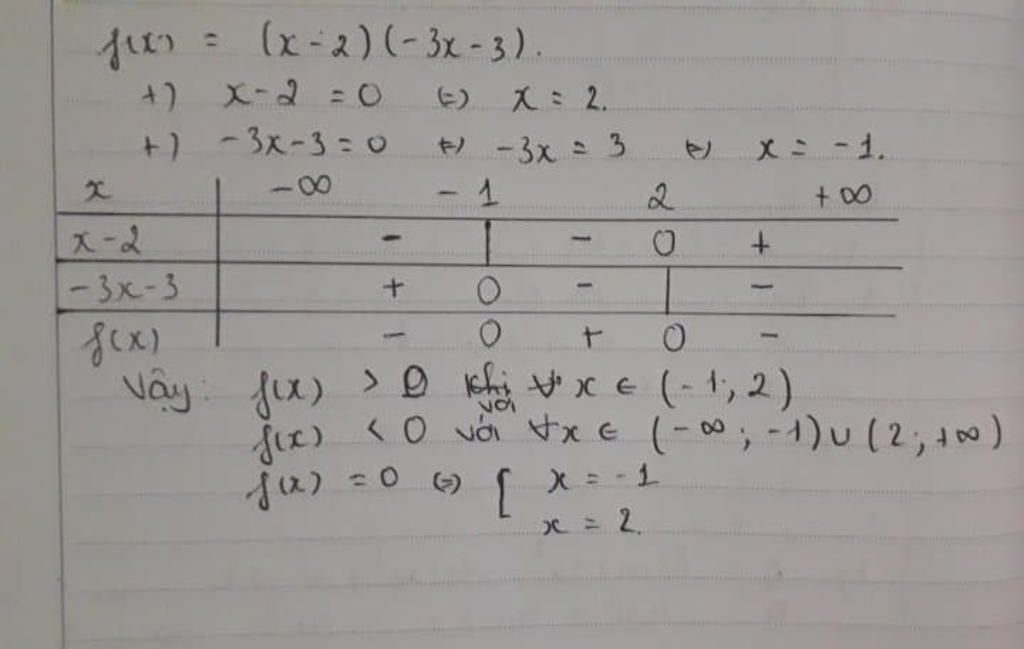 f(x) = (x-2)(-3x-3).
+) x-2 = 0 (=) x = 2.
+) -3x-3 = 0 (=) -3x = 3 (=) x = -1.
x -∞ -1 2 +∞
x-2 - | - 0 +
-3x-3 + 0 - | -
f(x) - 0 + 0 -
Vậy: f(x) > 0 khi ∀ x ∈ (-1; 2)
với
f(x) < 0 với ∀x ∈ (-∞; -1) ∪ (2; +∞)
f(x) = 0 (=) [ x = -1
x = 2.